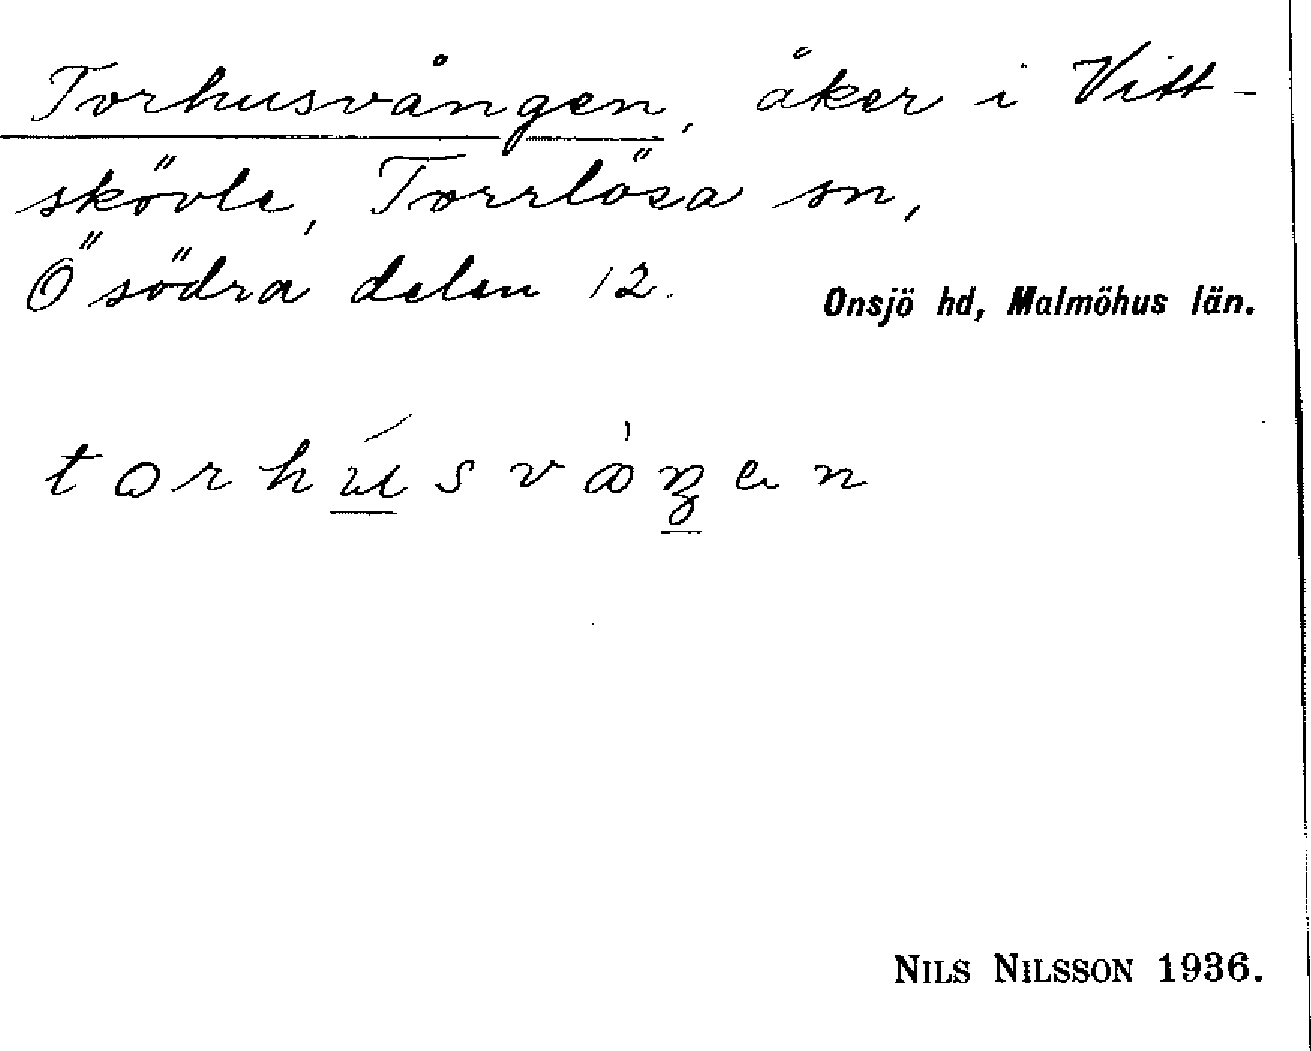 Torhusvången, åker i Vitt-
skövle, Torrlösa sn,
Ö södra delen 12. Onsjö hd, Malmöhus län.
torhúsvàŋen
NILS NILSSON 1936.